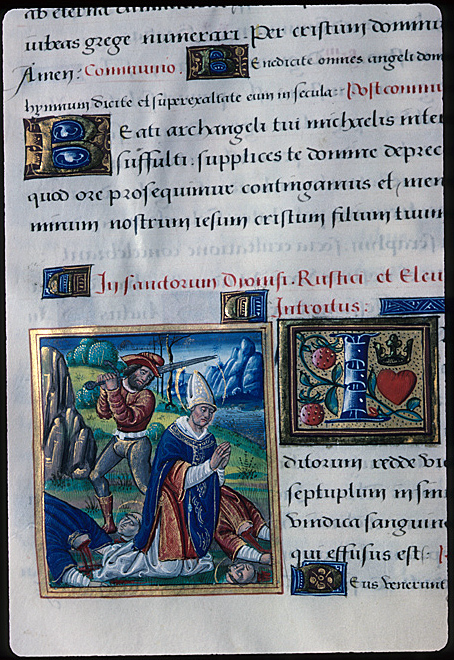 iubeas grege numerari. Per cristum dominu
Amen: Communio. Benedicite omnes angeli dom
hymnum dicite et superexaltate eum in secula: Postcommu
Beati archangeli tui michaelis inter
suffulti: supplices te domine deprec
quod ore prosequimur contingamus et men
minum nostrum iesum cristum filium tuum
In sanctorum Dionisi. Rustici et Eleu
Introitus:
I
ditorum redde vi
septuplum in sin
vindica sanguin
qui effusus est:
Deus venerunt